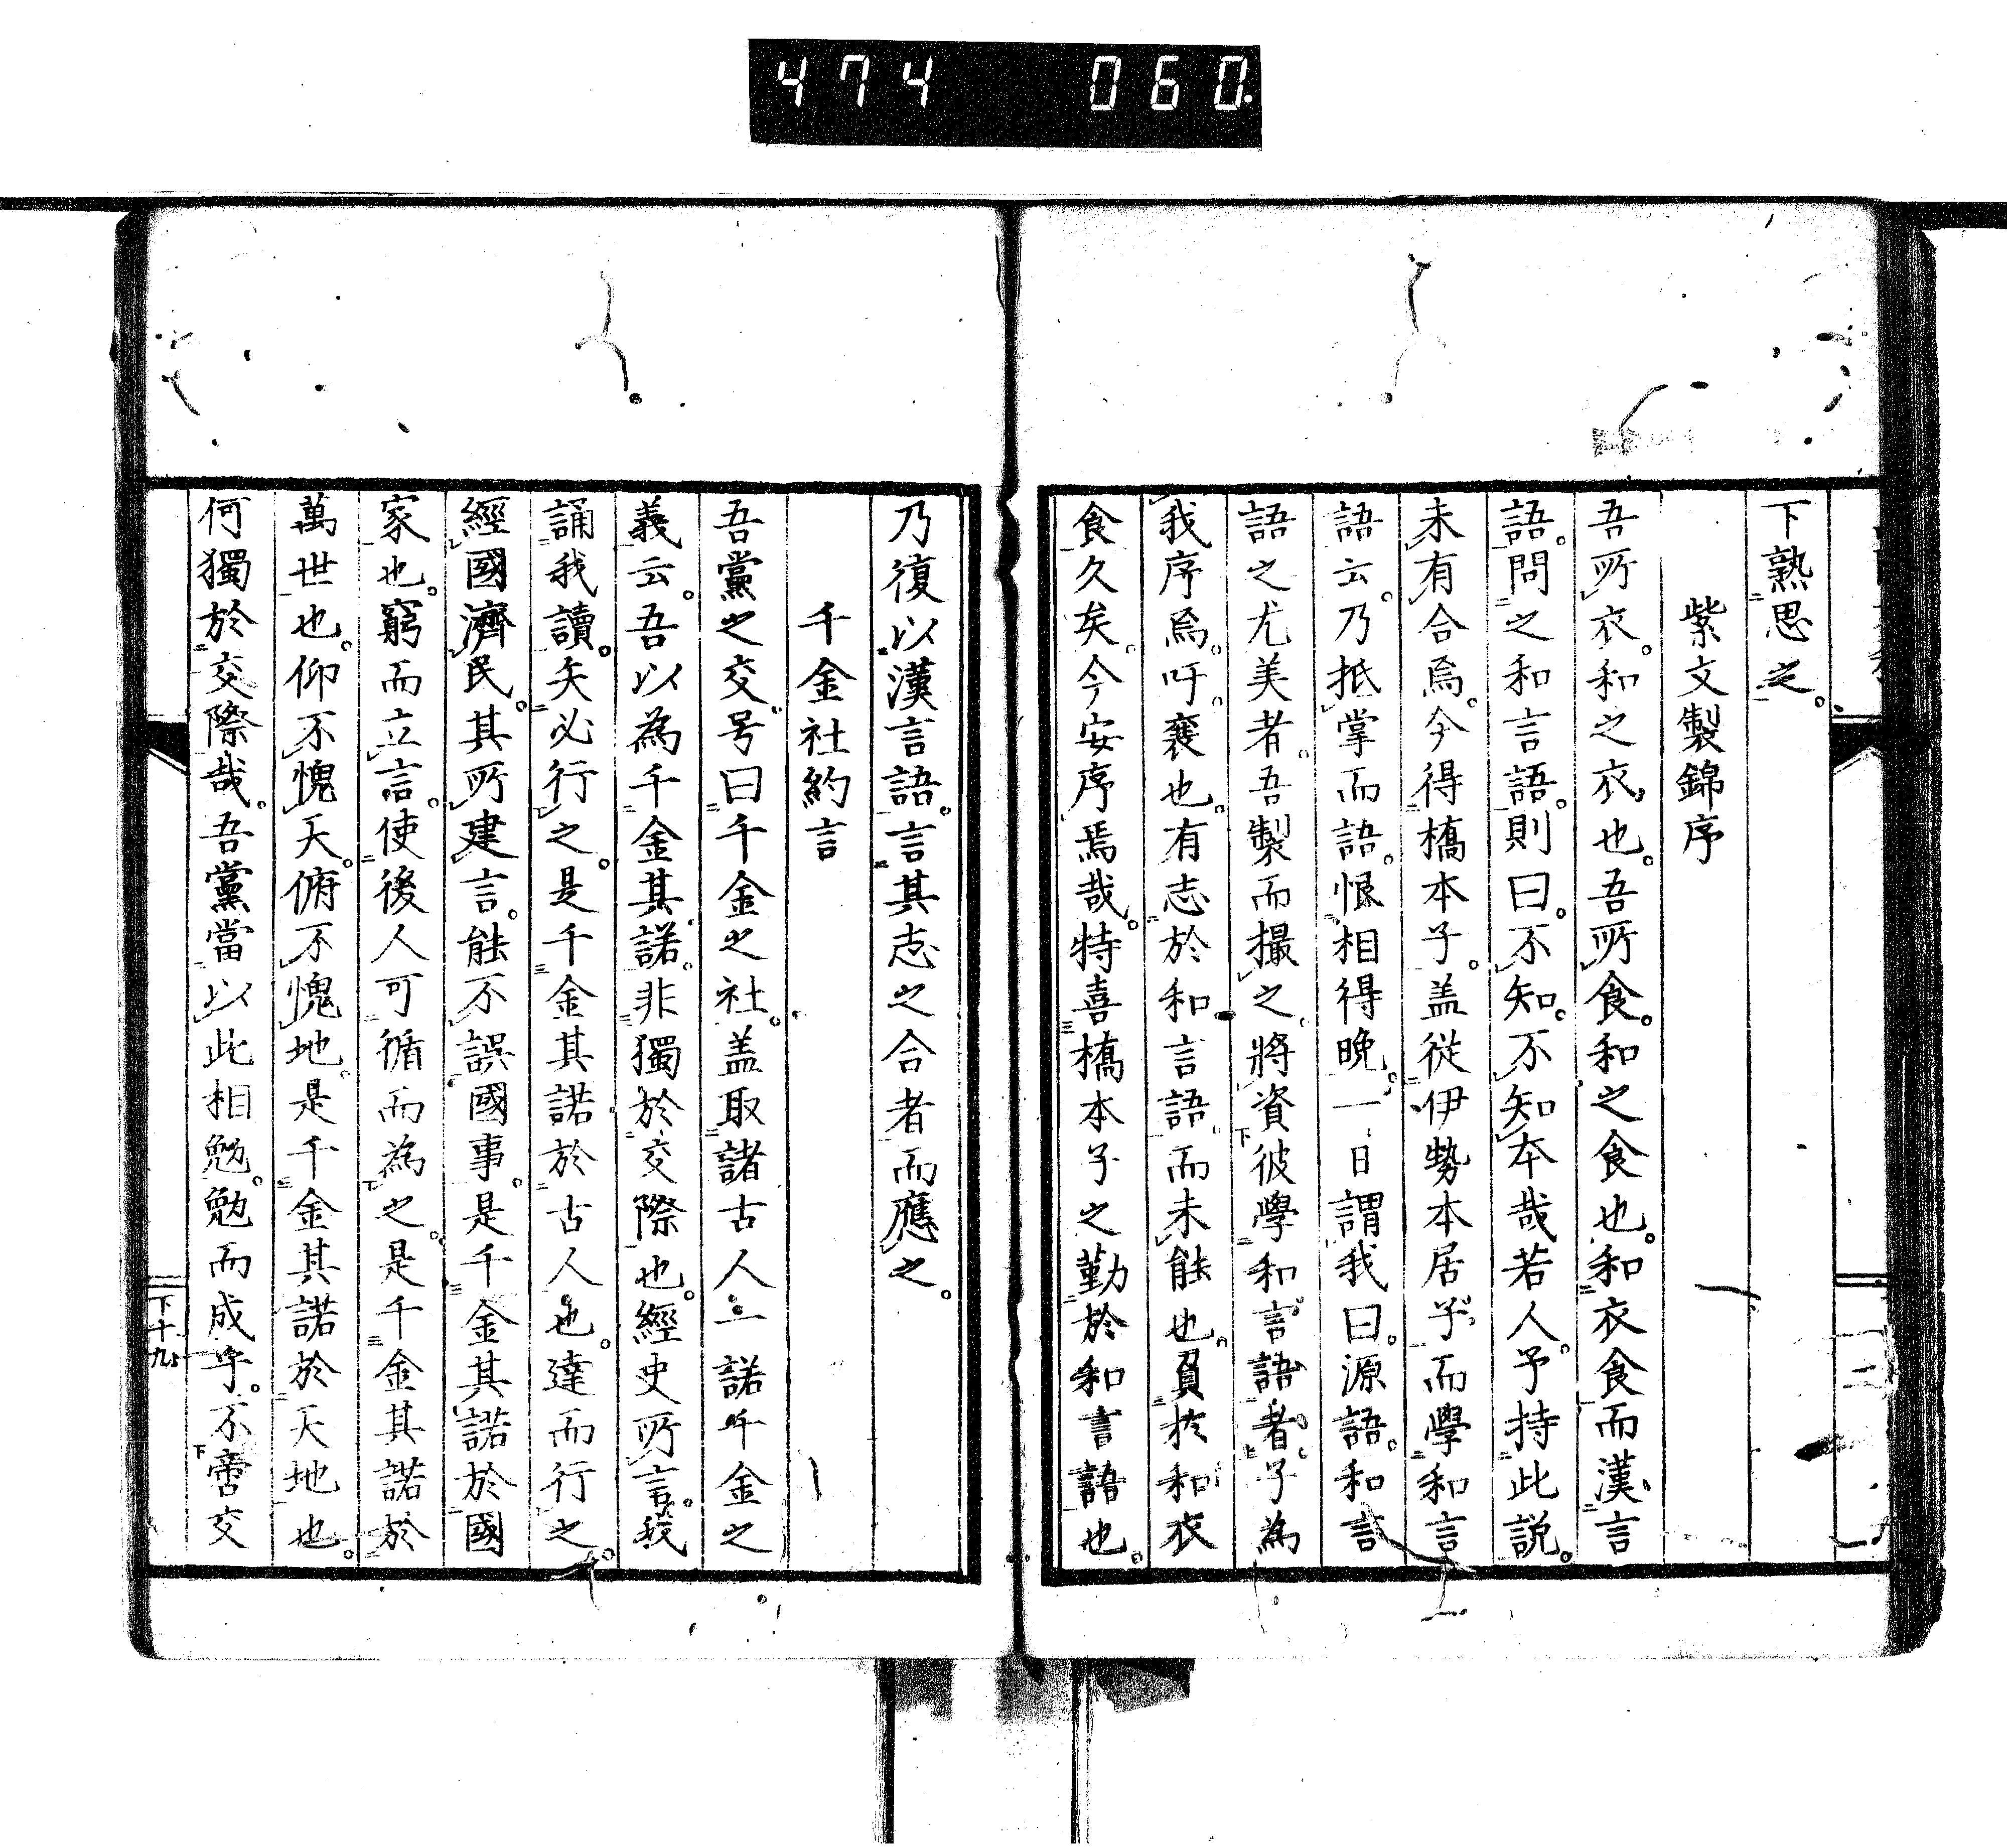 474 060.
下熟思之。
紫文製錦序
吾所衣。和之衣也。吾所食。和之食也。和衣食而漢言
語。問之和言語。則曰。不知。不知本哉若人。予持此説。
未有合焉。今得橋本子。盖從伊勢本居子。而學和言
語云。乃抵掌而語。恨相得晩。一日謂我曰。源語。和言
語之尤美者。吾製而撮之。將資彼學和言語者。子為
我序焉。吁。褒也。有志於和言語。而未能也。負於和衣
食久矣。今安序焉哉。特喜橋本子之勤於和書語也。
乃復以漢言語。言其志之合者而應之。
千金社約言
吾黨之交。号曰千金之社。盖取諸古人一諾千金之
義云。吾以為千金其諾。非獨於交際也。經史所言。我
誦我讀。矢必行之。是千金其諾於古人也。達而行之。
經國濟民。其所建言。能不誤國事。是千金其諾於國
家也。窮而立言。使後人可循而為之。是千金其諾於
萬世也。仰不愧天。俯不愧地。是千金其諾於天地也。
何獨於交際哉。吾黨當以此相勉。勉而成乎。不啻交
下十九